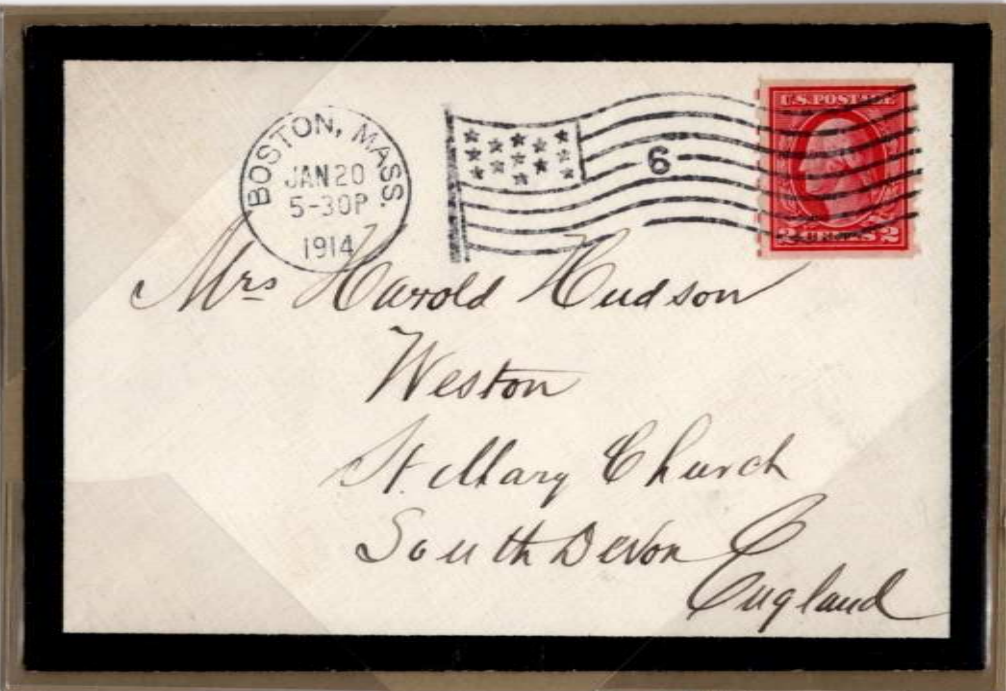 BOSTON, MASS.
JAN 20
5-30P
1914
6
U.S. POSTAGE
2 CENTS 2
Mrs Harold Hudson
Weston
St. Mary Church
South Devon
England